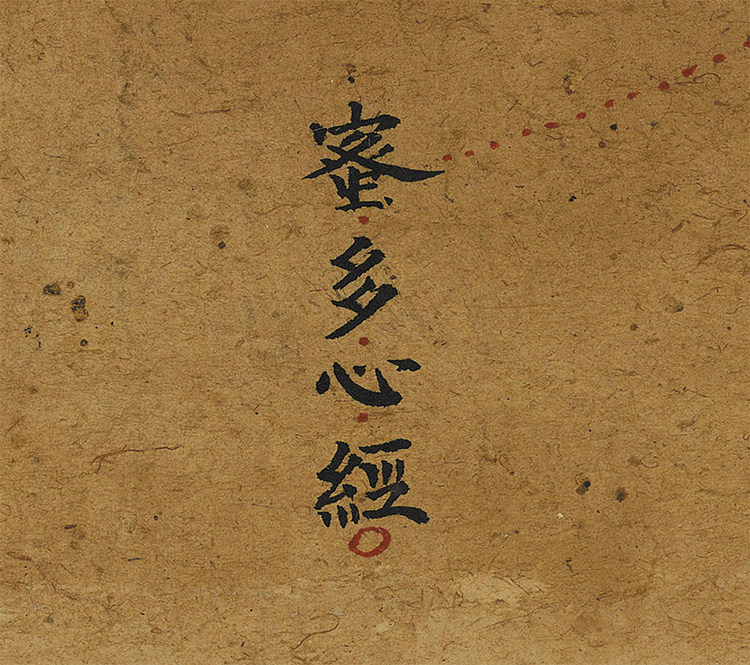 蜜多心經